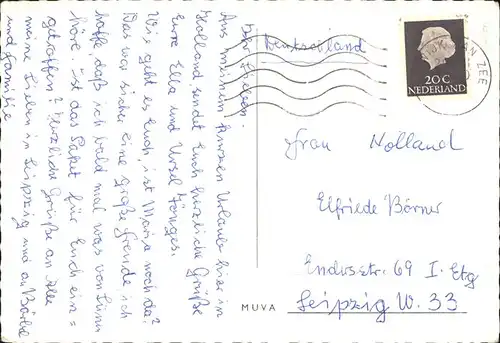 Ihr Lieben.
Aus meinem kurzen Urlaub hier in
Holland sendet Euch herzliche Grüße
Eure Ella und Ursel
Wie geht es Euch, ist Maria noch da?
Das war sicher eine große Freude ich
hoffe daß ich bald mal was von Euch
höre. Ist das Paket für Euch ein=
getroffen? Herzliche Grüße an alle
meine Lieben in Leipzig und an Bärbel
und Familie
Deutschland
ZEE
20 C
NEDERLAND
Frau Nolland
Elfriede Börner
Endrs.str. 69 I. Etg
Leipzig W. 33
MUVA